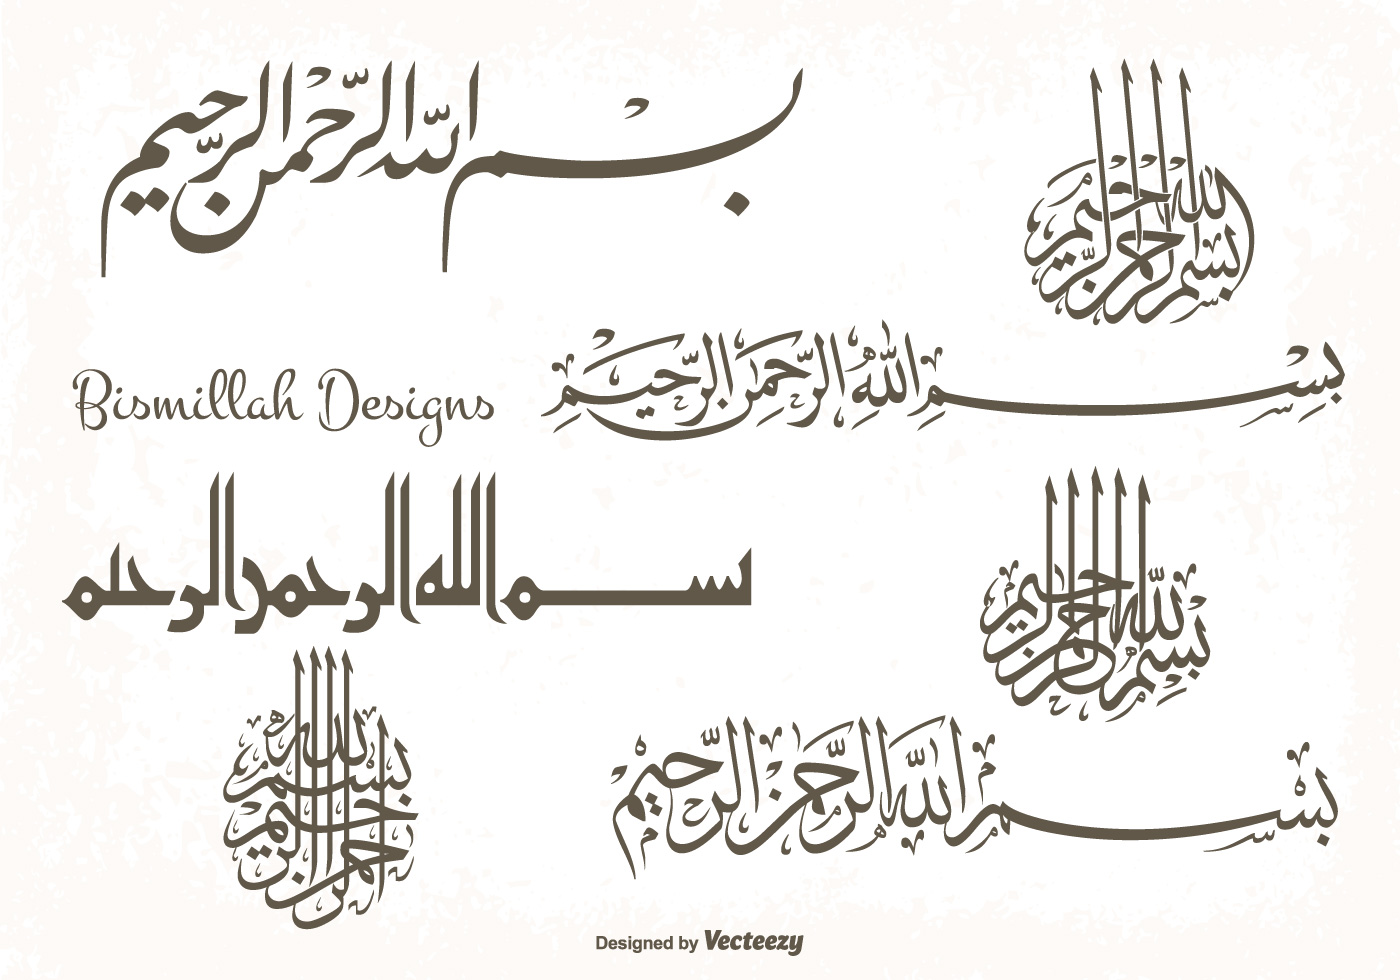 بسم الله الرحمن الرحيم
بسم الله الرحمن الرحيم
بِسْمِ اللهِ الرَّحْمَنِ الرَّحِيْمِ
Bismillah Designs
بسم الله الرحمن الرحيم
بسم الله الرحمن الرحيم
بسم الله الرحمن الرحيم
بسم الله الرحمن الرحيم
Designed by Vecteezy